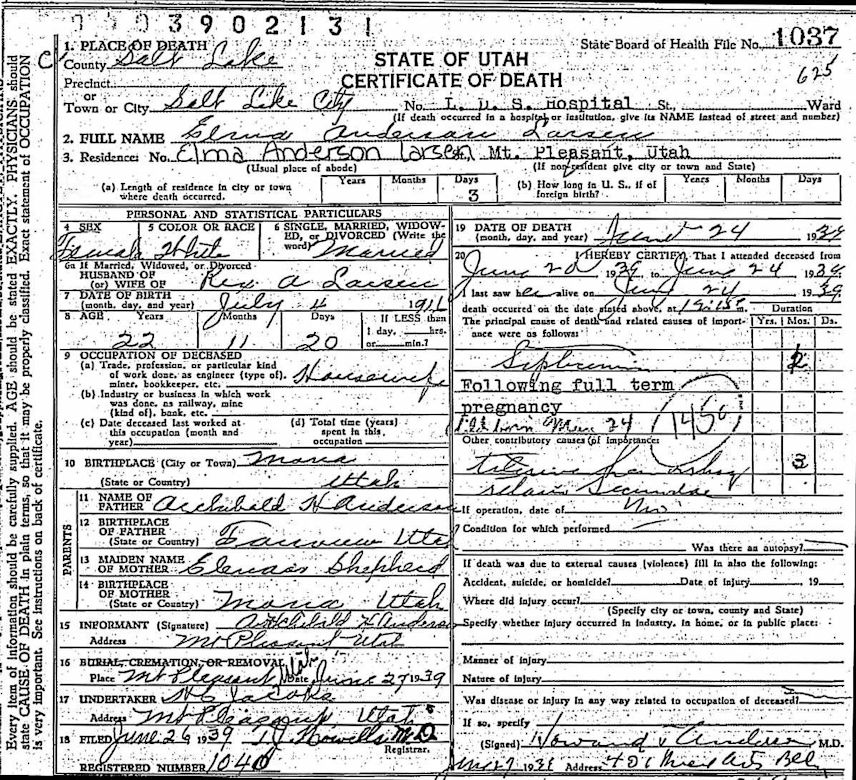 0 0 3 9 0 2 1 3 1
State Board of Health File No. 1037
625
1. PLACE OF DEATH
County Salt Lake
STATE OF UTAH
CERTIFICATE OF DEATH
Precinct
or
Town or City Salt Lake City No. L. D. S. Hospital St., Ward
(If death occurred in a hospital or institution, give its NAME instead of street and number)
2. FULL NAME Elma Anderson Larsen
3. Residence: No. Elma Anderson Larsen Mt. Pleasant, Utah
(Usual place of abode) (If non-resident give city or town and State)
(a) Length of residence in city or town where death occurred. Years Months Days 3
(b) How long in U. S., if of foreign birth? Years Months Days
PERSONAL AND STATISTICAL PARTICULARS
4 SEX Female
5 COLOR OR RACE White
6 SINGLE, MARRIED, WIDOWED, OR DIVORCED (Write the word) Married
6a If Married, Widowed, or Divorced
HUSBAND OF
(or) WIFE OF Rex A Larsen
7 DATE OF BIRTH
(month, day, and year) July 4 1916
8 AGE Years Months Days If LESS than
1 day, hrs.
or min.?
22 11 20
9 OCCUPATION OF DECEASED
(a) Trade, profession, or particular kind
of work done, as engineer (type),
miner, bookkeeper, etc. Housewife
(b) Industry or business in which work
was done, as railway, mine
(kind of), bank, etc.
(c) Date deceased last worked at
this occupation (month and
year)
(d) Total time (years)
spent in this
occupation
10 BIRTHPLACE (City or Town) Mona
(State or Country) Utah
PARENTS
11 NAME OF
FATHER Archibald H Anderson
12 BIRTHPLACE
OF FATHER
(State or Country) Fairview Utah
13 MAIDEN NAME
OF MOTHER Shepherd
14 BIRTHPLACE
OF MOTHER
(State or Country) Mona Utah
15 INFORMANT (Signature) Archibald H Anderson
Address Mt Pleasant Utah
16 BURIAL, CREMATION, OR REMOVAL
Place Mt Pleasant Utah Date June 27 1939
17 UNDERTAKER Jacobs
Address Mt Pleasant Utah
18 FILED June 26 1939 M.D.
Registrar.
REGISTERED NUMBER 1040
19 DATE OF DEATH
(month, day, and year) June 24 1939
20 I HEREBY CERTIFY, That I attended deceased from
June 22 1939 to June 24 1939
I last saw her alive on June 24 1939
death occurred on the date stated above, at m.
The principal cause of death and related causes of importance were as follows:
Duration
Yrs. Mos. Ds.
2
Following full term
pregnancy
145
Other contributory causes of importance:
3
If operation, date of No
Condition for which performed
Was there an autopsy?
If death was due to external causes (violence) fill in also the following:
Accident, suicide, or homicide? Date of injury 19
Where did injury occur?
(Specify city or town, county and State)
Specify whether injury occurred in industry, in home, or in public place:
Manner of injury
Nature of injury
Was disease or injury in any way related to occupation of deceased?
If so, specify
(Signed) Howard M.D.
1939 Address
Every item of information should be carefully supplied. AGE should be stated EXACTLY. PHYSICIANS should
state CAUSE OF DEATH in plain terms, so that it may be properly classified. Exact statement of OCCUPATION
is very important. See instructions on back of certificate.